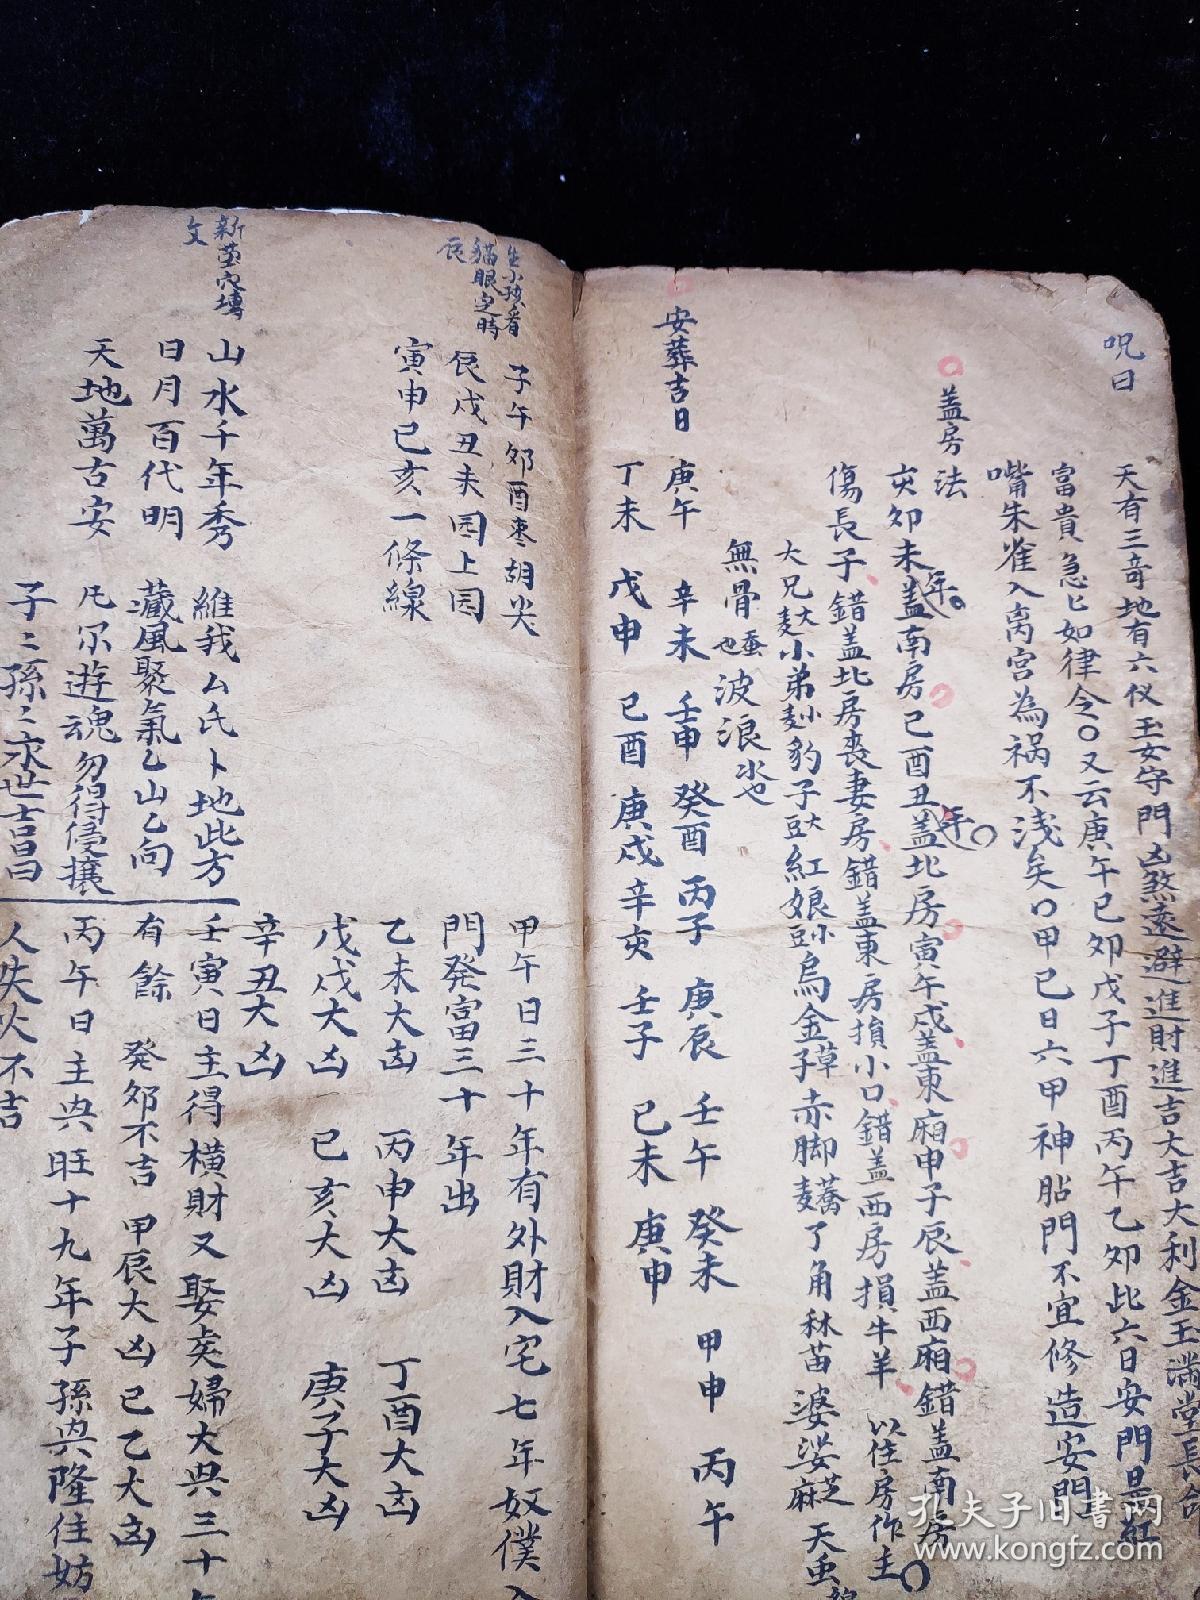 呪曰
天有三奇地有六仪玉女守門凶煞遠避進財進吉大吉大利金玉滿堂長命
富貴急匕如律令〇又云庚午已卯戊子丁酉丙午乙卯此六日安門是紅
嘴朱雀入离宫為祸不浅矣口甲已日六甲神貼門不宜修造安門
盖房法
亥卯未年盖南房已酉丑年盖北房寅午戍盖東廂申子辰盖西廂錯盖南房
傷長子錯盖北房喪妻房錯盖東房損小口錯盖西房損牛羊以住房作主
大兄大麦小弟小麦豹子大豆紅娘小豆烏金子草赤脚蕎麦了角秫苗婆娑芝麻天虫
無骨蚕也波浪
安葬吉日
庚午 辛未 壬申 癸酉 丙子 庚辰 壬午 癸未 甲申 丙午
丁未 戊申 已酉 庚戍 辛亥 壬子 已未 庚申
生小孩看
猫眼定時
辰
子午卯酉枣胡尖
辰戍丑未园上园
寅申已亥一條線
新塋穴塼
文
山水千年秀
日月百代明
天地萬古安
維我厶氏卜地此方
藏風聚氣乙山乙向
凡尔遊魂勿得侵攘
子二孫二永世吉昌
甲午日三十年有外財入宅七年奴僕入
門發富三十年出
乙未大凶 丙申大凶 丁酉大凶
戊戍大凶 已亥大凶 庚子大凶
辛丑大凶
壬寅日主得橫財又娶妾婦大興三十年
有餘 癸卯不吉 甲辰大凶 已乙大凶
丙午日主興旺十九年子孫興隆住妨
人失火不吉
孔夫子旧書网
www.kongfz.com